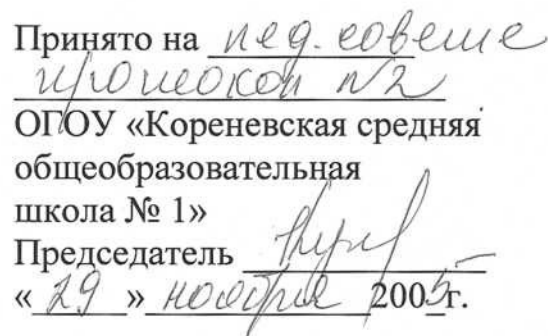 Принято на пед. совете
протокол №2
ОГОУ «Кореневская средняя
общеобразовательная
школа № 1»
Председатель
«29» ноября 2005г.